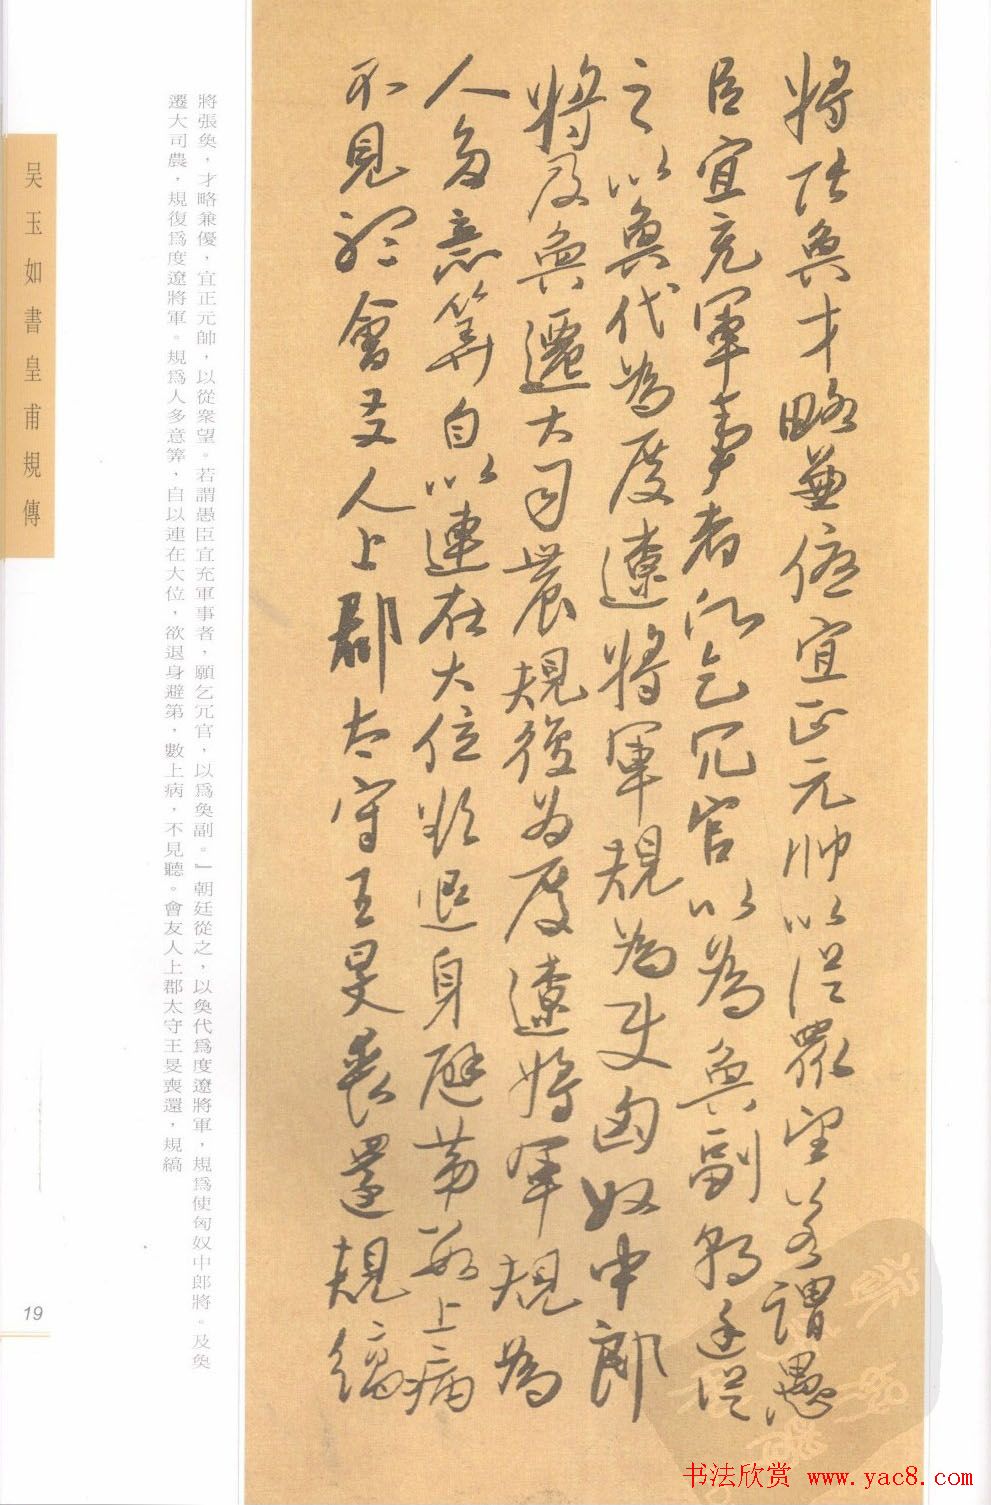 將張奐才略兼優宜正元帥以從眾望若謂愚
臣宜充軍事者願乞冗官以為奐副朝廷從
之以奐代為度遼將軍規為使匈奴中郎
將及奐遷大司農規復為度遼將軍規為
人多意筭自以連在大位欲退身避第數上病
不見聽會友人上郡太守王旻喪還規縞
將張奐，才略兼優，宜正元帥，以從衆望。若謂愚臣宜充軍事者，願乞冗官，以爲奐副。』朝廷從之，以奐代爲度遼將軍，規爲使匈奴中郎將。及奐
遷大司農，規復爲度遼將軍。規爲人多意筭，自以連在大位，欲退身避第，數上病，不見聽。會友人上郡太守王旻喪還，規縞
吴玉如書皇甫規傳
19
书法欣赏 www.yac8.com